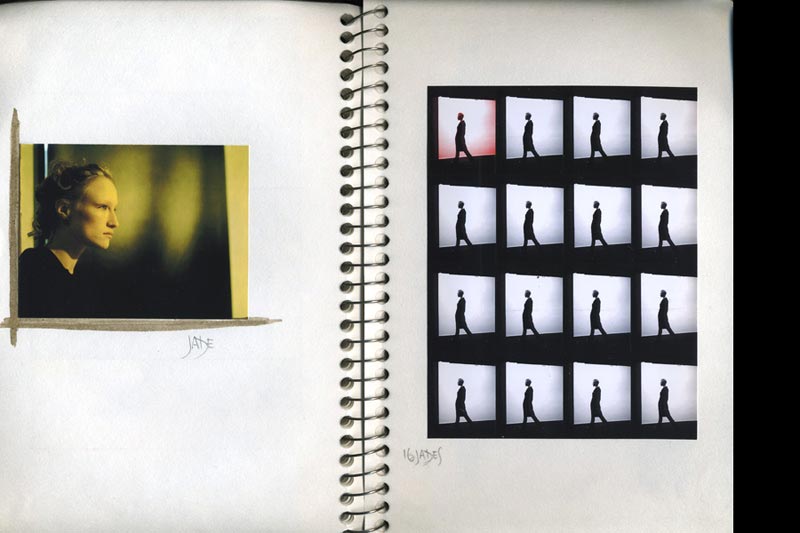 JADE
16 JADES